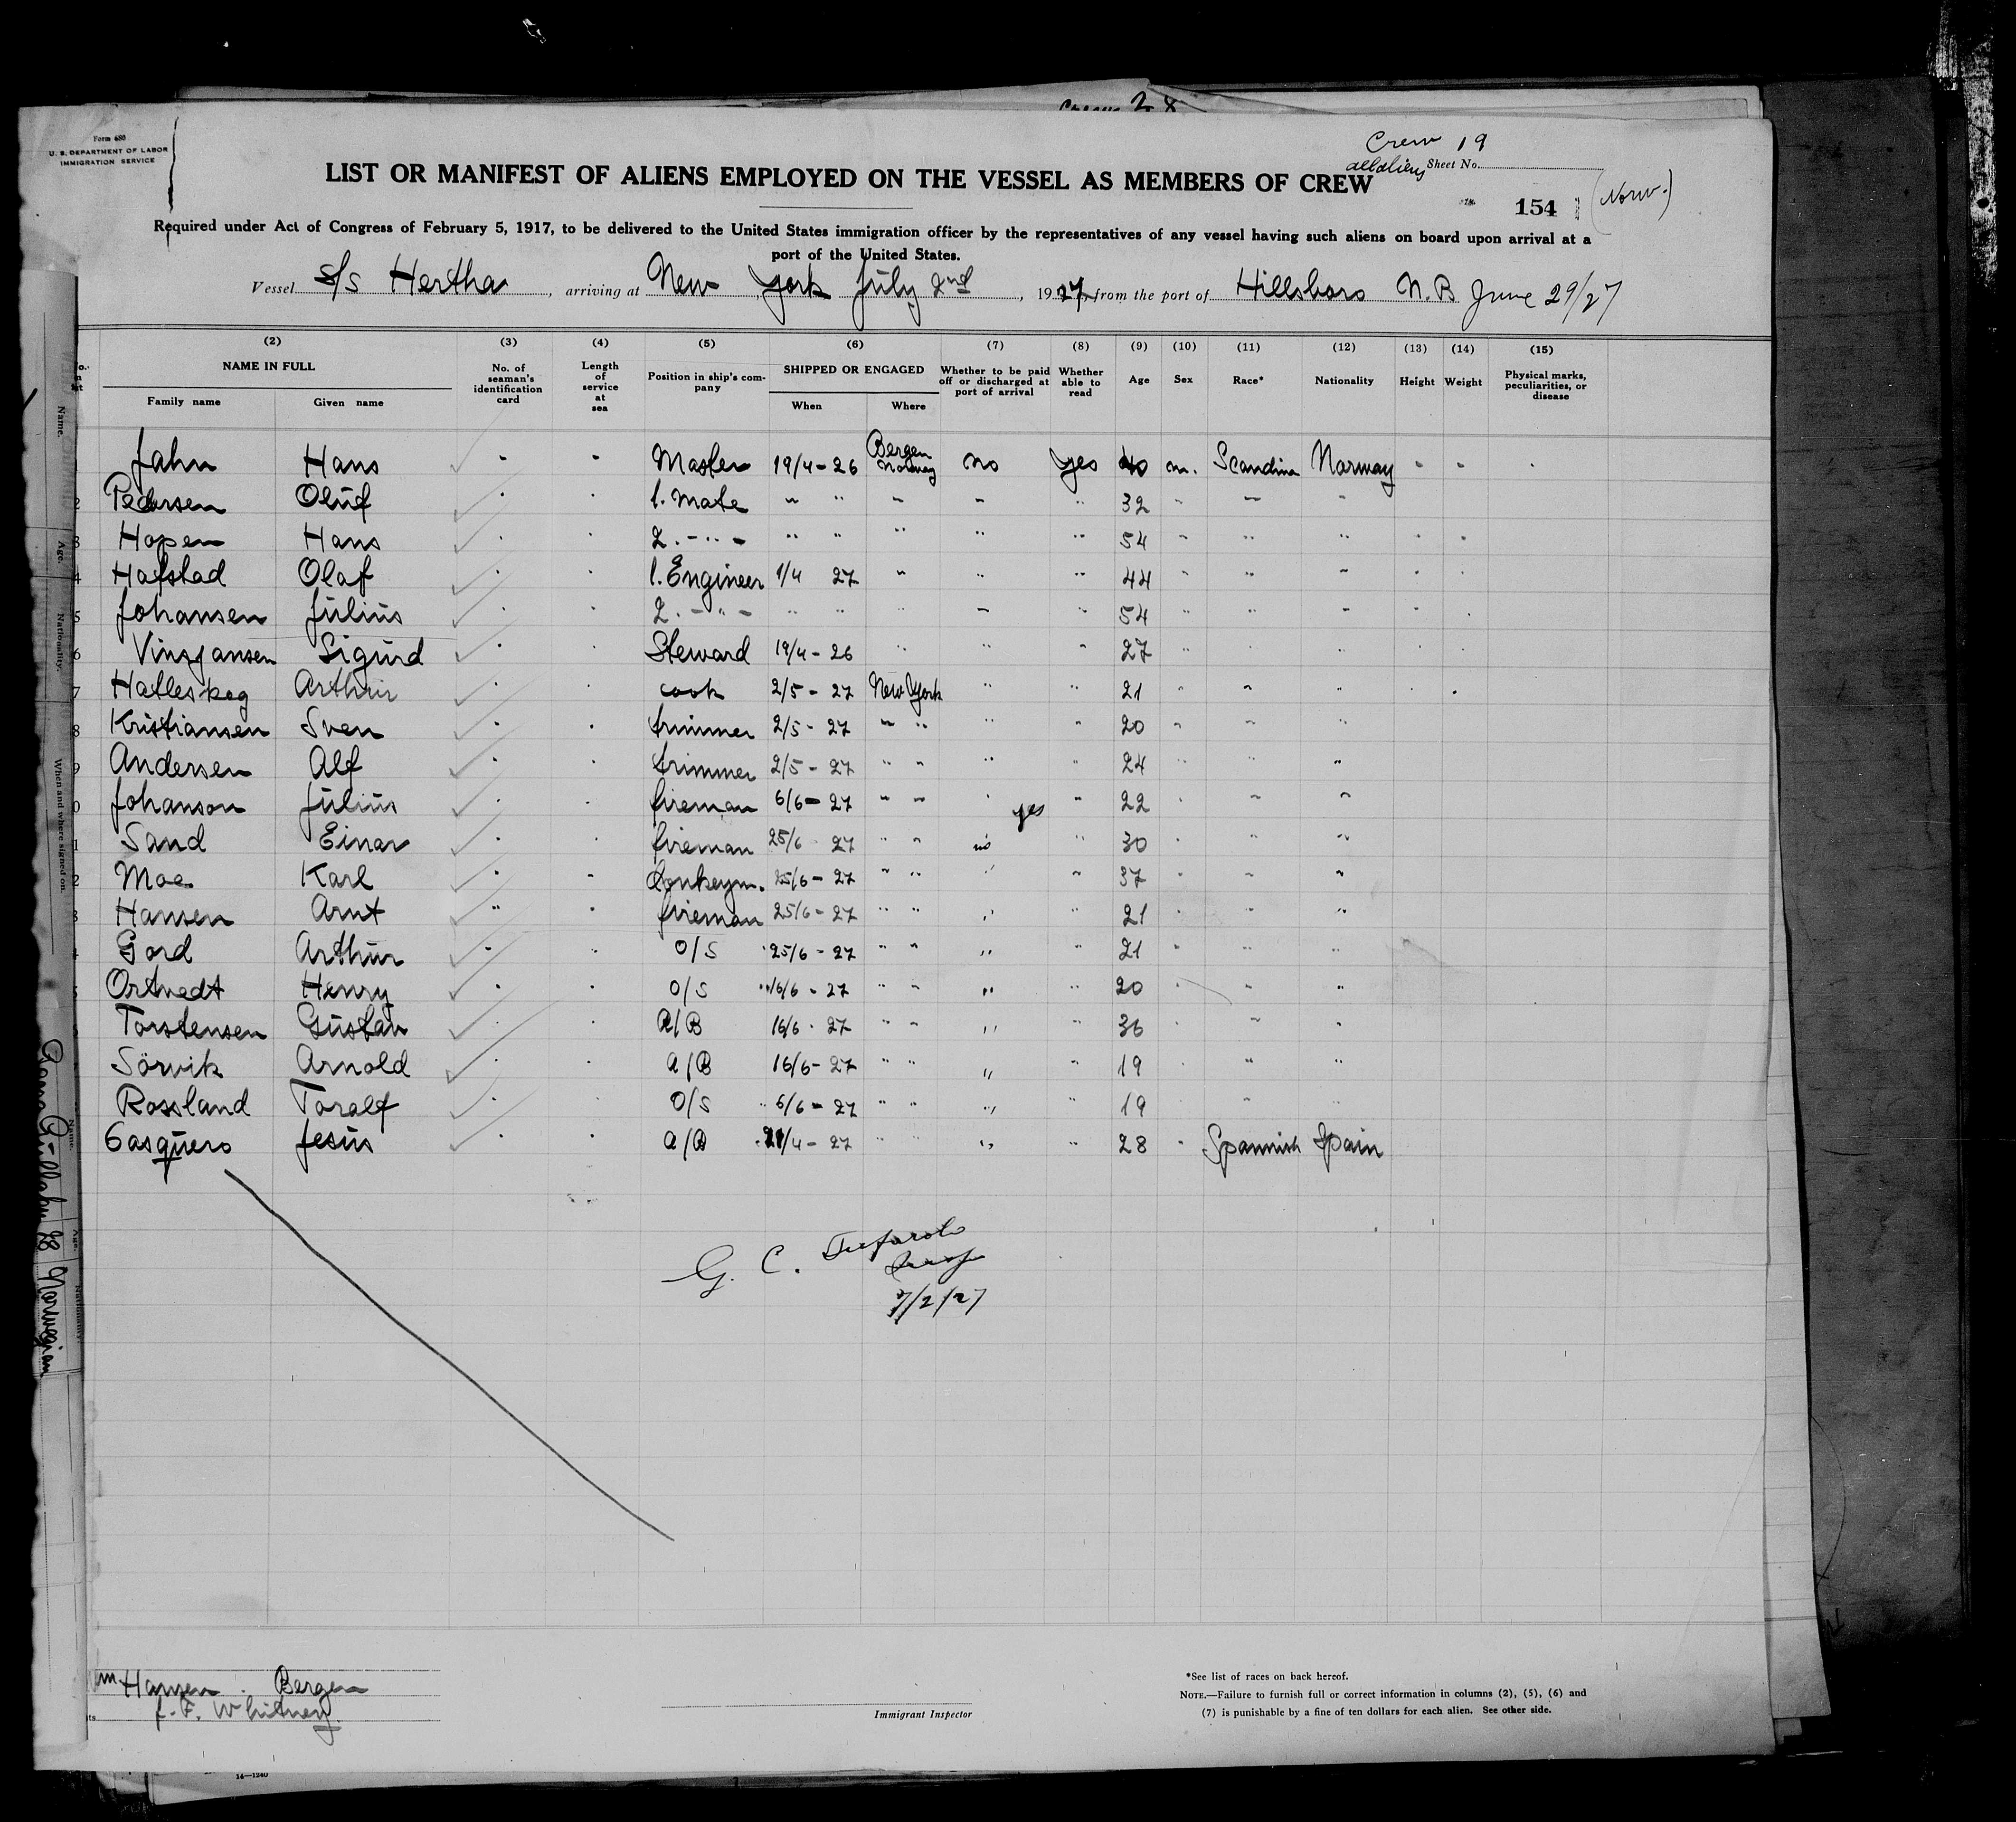 Crew 28
Form 680
U. S. DEPARTMENT OF LABOR
IMMIGRATION SERVICE
Crew 19
all aliens Sheet No.
LIST OR MANIFEST OF ALIENS EMPLOYED ON THE VESSEL AS MEMBERS OF CREW
154 (Norw.)
Required under Act of Congress of February 5, 1917, to be delivered to the United States immigration officer by the representatives of any vessel having such aliens on board upon arrival at a
port of the United States.
Vessel S/S Hertha, arriving at New York July 2nd, 1927, from the port of Hillsboro N.B June 29/27
(2) (3) (4) (5) (6) (7) (8) (9) (10) (11) (12) (13) (14) (15)
NAME IN FULL No. of seaman's identification card Length of service at sea Position in ship's company SHIPPED OR ENGAGED Whether to be paid off or discharged at port of arrival Whether able to read Age Sex Race* Nationality Height Weight Physical marks, peculiarities, or disease
Family name Given name When Where
Jahn Hans - - Master 19/4-26 Bergen Norway no yes 40 m. Scandina Norway - - -
2 Pedersen Oluf 1. Mate " " " " " 32 " " "
3 Hopen Hans 2. - " - " " " " " 54 " " "
4 Hafstad Olaf 1. Engineer 1/4 27 " " " 44 " " "
5 Johansen Julius 2. - " - " " " " " 54 " " "
6 Vingjansen Sigurd Steward 19/4-26 " " " 27 " " "
7 Halleskog Arthur cook 2/5-27 New York " " 21 " " "
8 Kristiansen Sven trimmer 2/5-27 " " " " 20 " " "
9 Andersen Alf trimmer 2/5-27 " " " " 24 " " "
0 Johanson Julius fireman 6/6-27 " " " yes " 22 " " "
1 Sand Einar fireman 25/6 27 " " no " 30 " " "
2 Moe Karl donkeym. 25/6-27 " " " " 37 " " "
3 Hansen Arnt fireman 25/6-27 " " " " 21 " " "
Gord Arthur O/S 25/6-27 " " " " 21 " " "
Ortvedt Henry O/S 16/6-27 " " " " 20 " " "
Torstensen Gustav A/B 16/6-27 " " " " 36 " " "
Sörvik Arnold A/B 16/6-27 " " " " 19 " " "
Rossland Toralf O/S 6/6-27 " " " " 19 " " "
Gasquero Jesus A/B 21/4-27 " " " " 28 " Spannish Spain
G. C.
7/2/27
Name. Age. Nationality. When and where signed on.
Name. Age. Nationality.
28 Norwegian
Hansen. Bergen
F. Whitney
Immigrant Inspector
*See list of races on back hereof.
NOTE.—Failure to furnish full or correct information in columns (2), (5), (6) and
(7) is punishable by a fine of ten dollars for each alien. See other side.
14—1240